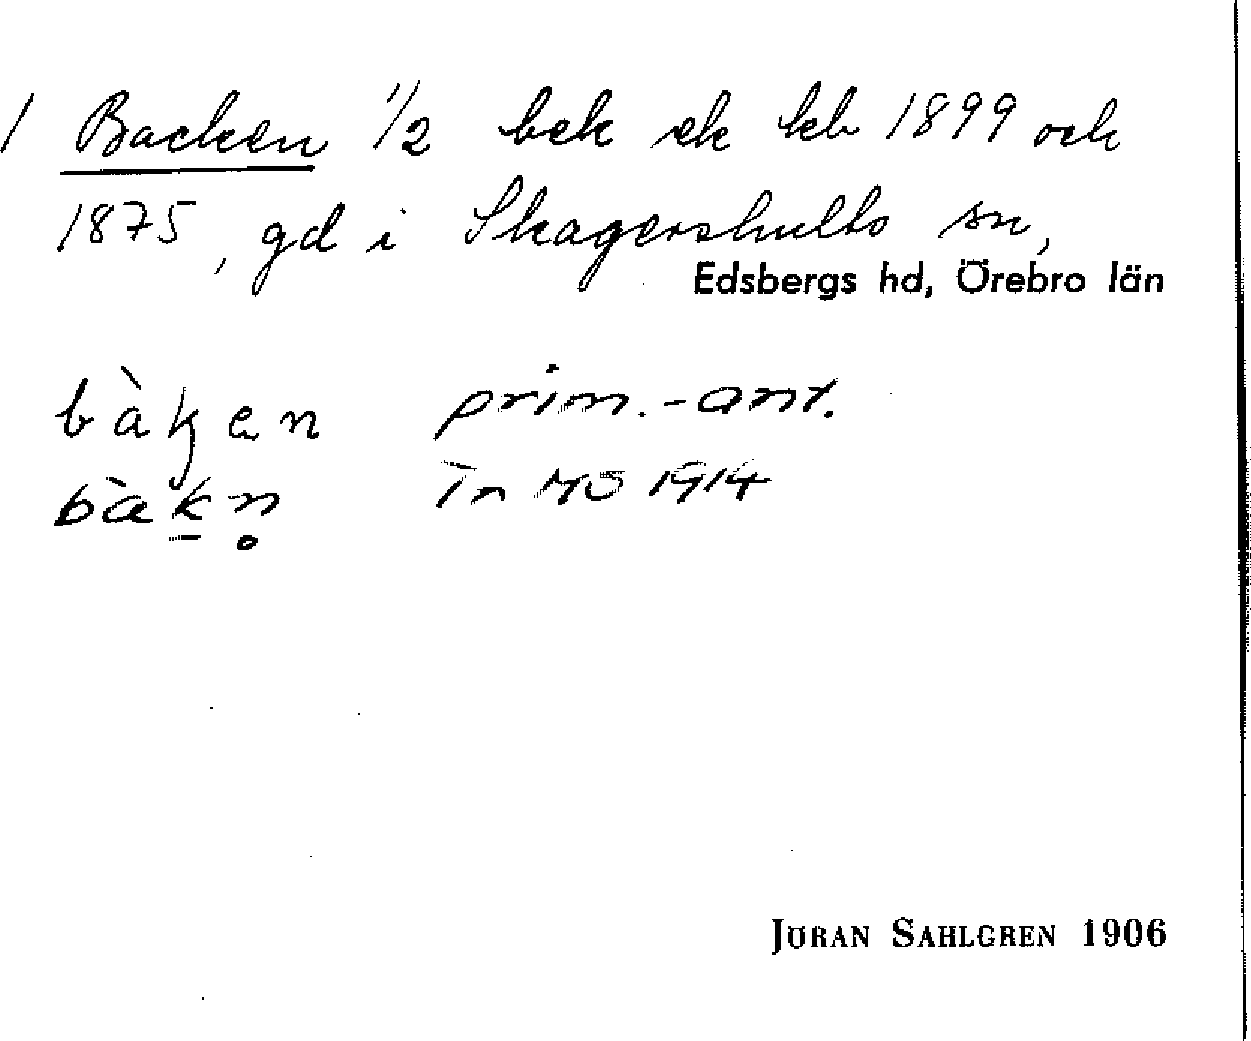 1 Backen 1/2 bek ek kb 1899 och
1875, gd i Skagershults sn,
Edsbergs hd, Örebro län
bàken prim.-ant.
bàkn̥ In MÖ 1914
JÖRAN SAHLGREN 1906